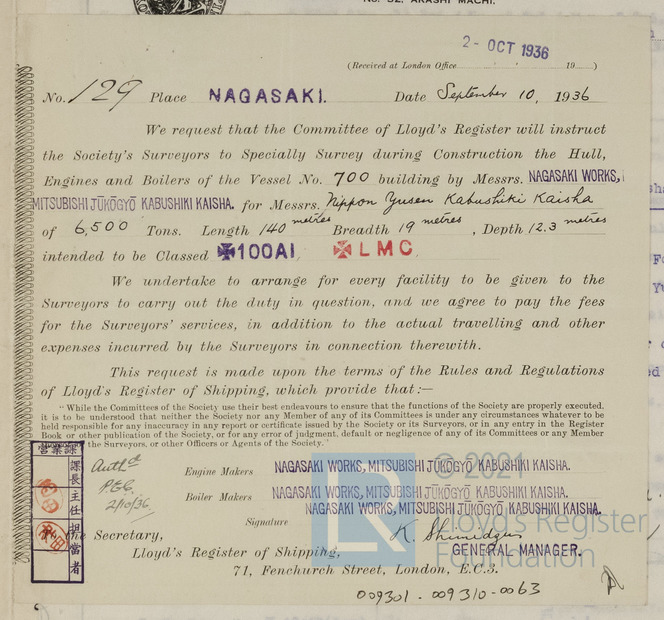 No. 32, AKASHI MACHI.
2 - OCT 1936
(Received at London Office 19 )
No. 129 Place NAGASAKI. Date September 10, 1936
We request that the Committee of Lloyd's Register will instruct
the Society's Surveyors to Specially Survey during Construction the Hull,
Engines and Boilers of the Vessel No. 700 building by Messrs. NAGASAKI WORKS,
MITSUBISHI JŪKŌGYŌ KABUSHIKI KAISHA. for Messrs. Nippon Yusen Kabushiki Kaisha
of 6,500 Tons. Length 140 metres Breadth 19 metres, Depth 12.3 metres
intended to be Classed ✠100A1 ✠LMC.
We undertake to arrange for every facility to be given to the
Surveyors to carry out the duty in question, and we agree to pay the fees
for the Surveyors' services, in addition to the actual travelling and other
expenses incurred by the Surveyors in connection therewith.
This request is made upon the terms of the Rules and Regulations
of Lloyd's Register of Shipping, which provide that:—
"While the Committees of the Society use their best endeavours to ensure that the functions of the Society are properly executed,
it is to be understood that neither the Society nor any Member of any of its Committees is under any circumstances whatever to be
held responsible for any inaccuracy in any report or certificate issued by the Society or its Surveyors, or in any entry in the Register
Book or other publication of the Society, or for any error of judgment, default or negligence of any of its Committees or any Member
the Surveyors, or other Officers or Agents of the Society."
營業課
課長
主任
担當者
Authd
2/10/36
Engine Makers NAGASAKI WORKS, MITSUBISHI JŪKŌGYŌ KABUSHIKI KAISHA.
Boiler Makers NAGASAKI WORKS, MITSUBISHI JŪKŌGYŌ KABUSHIKI KAISHA.
NAGASAKI WORKS, MITSUBISHI JŪKŌGYŌ KABUSHIKI KAISHA.
Signature K.
the Secretary, GENERAL MANAGER.
Lloyd's Register of Shipping,
71, Fenchurch Street, London, E.C.3.
009301-009310-0063
© 2021
Lloyd's Register
Foundation
LR